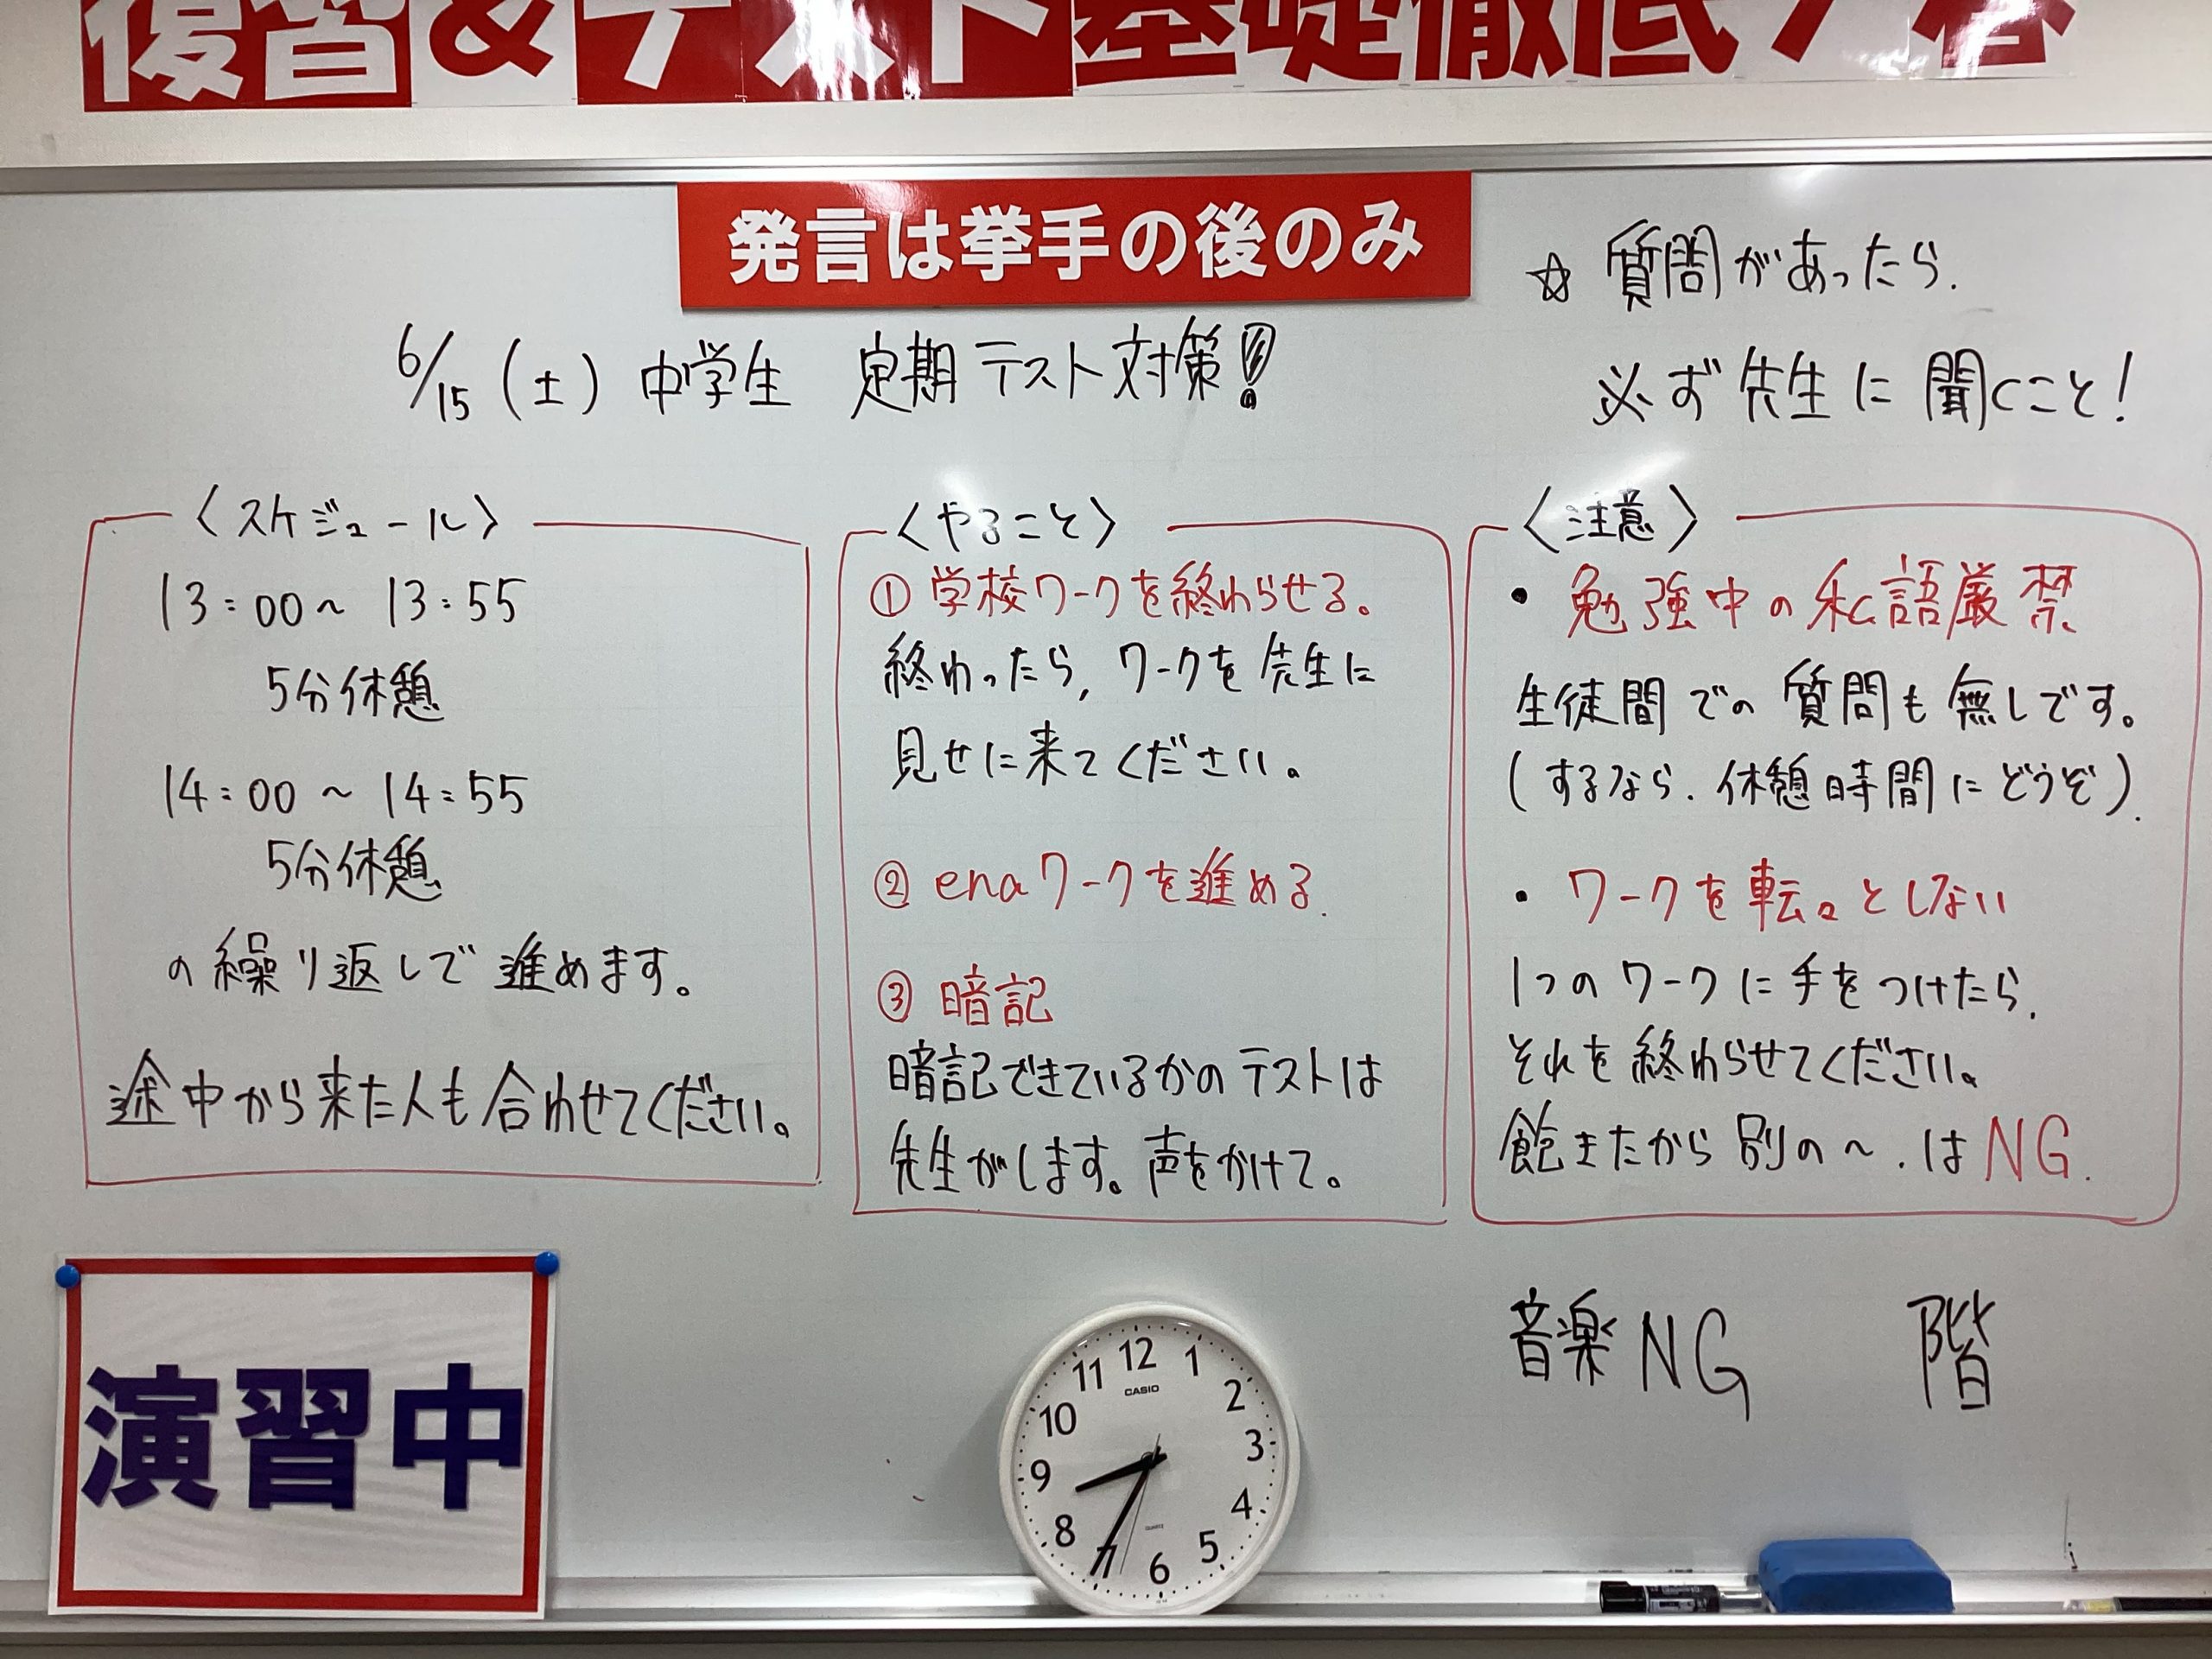 復習&テスト基礎徹底
発言は挙手の後のみ
☆ 質問があったら.
必ず先生に聞くこと!
6/15(土)中学生 定期テスト対策!
〈スケジュール〉
13:00~13:55
5分休憩
14:00~14:55
5分休憩
の繰り返しで進めます。
途中から来た人も合わせてください。
〈やること〉
①学校ワークを終わらせる。
終わったら,ワークを先生に
見せに来てください。
②enaワークを進める.
③暗記
暗記できているかのテストは
先生がします。声をかけて。
〈注意〉
・勉強中の私語厳禁
生徒間での質問も無しです。
(するなら.休憩時間にどうぞ).
・ワークを転々としない
1つのワークに手をつけたら.
それを終わらせてください。
飽きたから別の~.はNG.
音楽NG 階
演習中
12
1
2
3
4
5
6
7
8
9
10
11
CASIO
QUARTZ